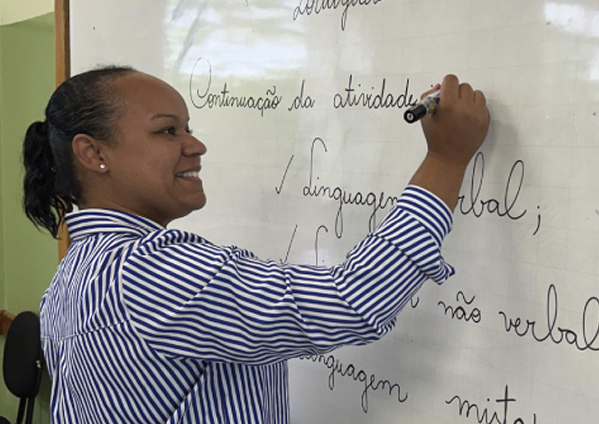 Continuação da atividade
✓ Linguagem verbal;
não verbal
Linguagem mista